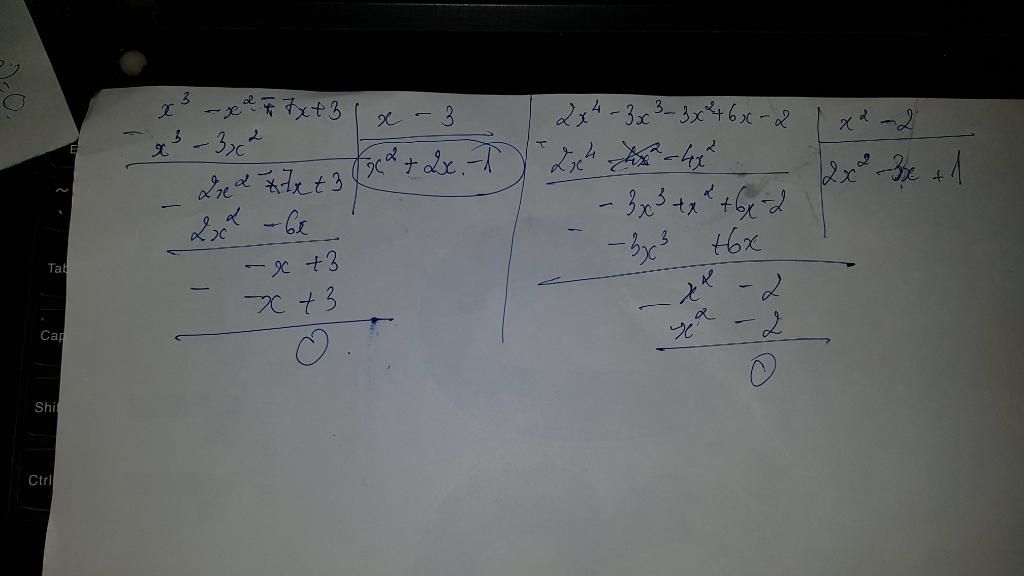 x³ - x² - 7x + 3 | x - 3
- x³ - 3x² | x² + 2x - 1
2x² - 7x + 3
- 2x² - 6x
-x + 3
- -x + 3
0
2x⁴ - 3x³ - 3x² + 6x - 2 | x² - 2
- 2x⁴ - 4x² | 2x² - 3x + 1
-3x³ + x² + 6x - 2
- -3x³ + 6x
x² - 2
- x² - 2
0
Tab
Cap
Shi
Ctrl